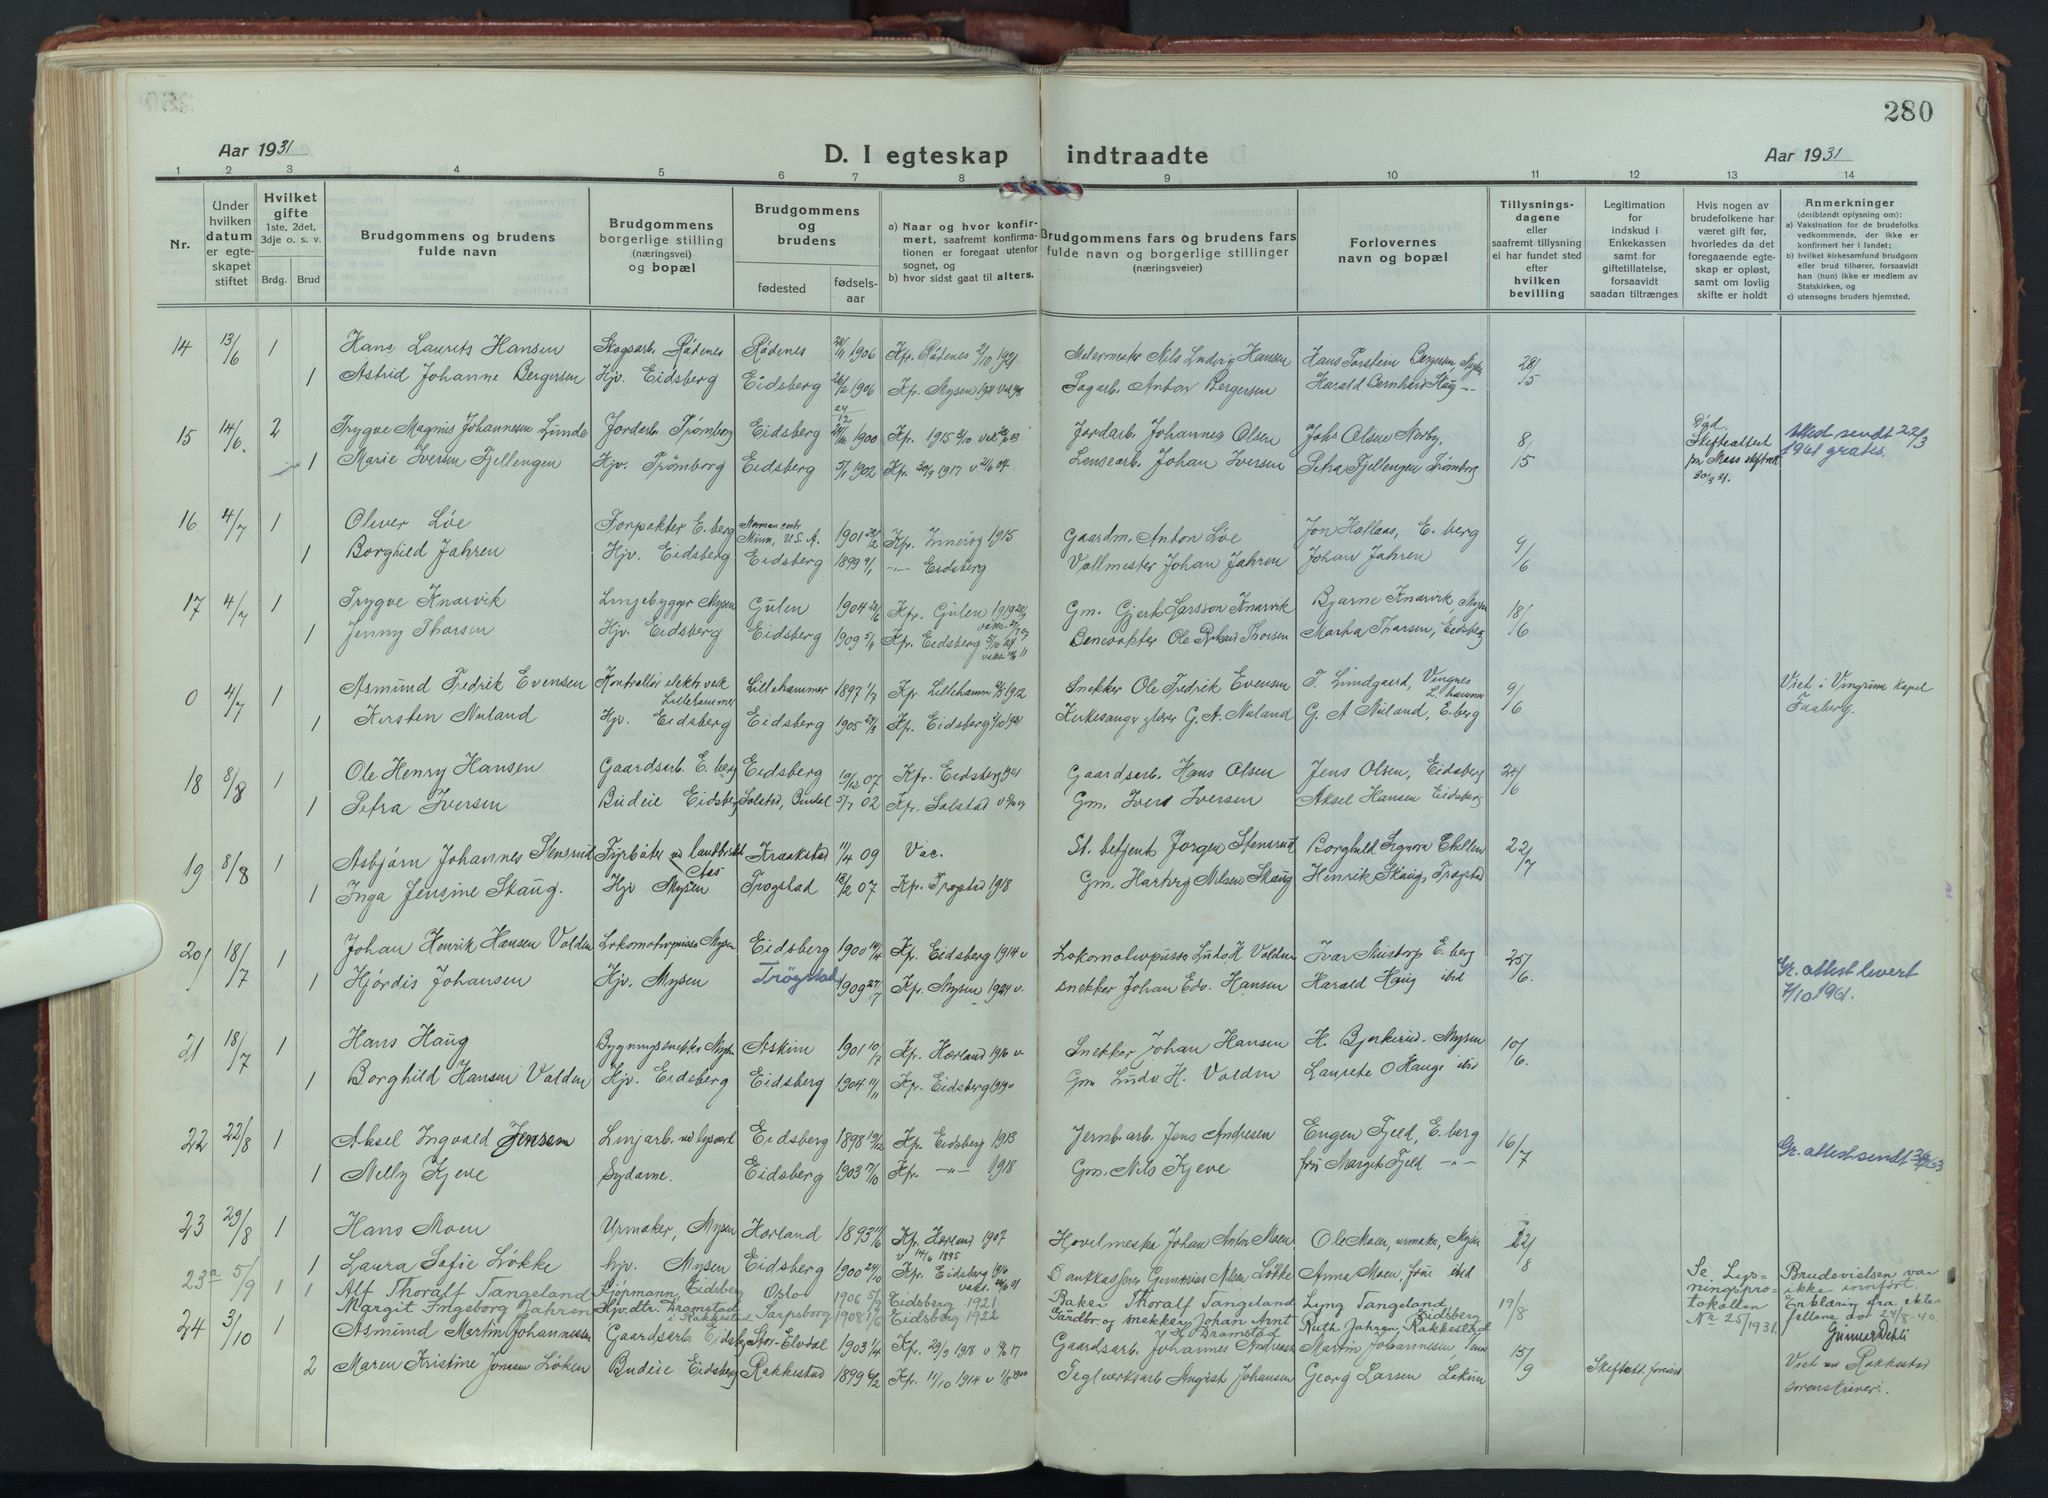 280
Aar 1931
D. I egteskap indtraadte
Aar 1931
1 2 3 4 5 6 7 8 9 10 11 12 13 14
Nr.
Under hvilken datum er egteskapet stiftet
Hvilket gifte 1ste, 2det, 3dje o. s. v.
Brdg. Brud
Brudgommens og brudens fulde navn
Brudgommens borgerlige stilling (næringsvei) og bopæl
Brudgommens og brudens
fødested
fødselsaar
a) Naar og hvor konfirmert, saafremt konfirmationen er foregaat utenfor sognet, og
b) hvor sidst gaat til alters.
Brudgommens fars og brudens fars fulde navn og borgerlige stillinger (næringsveier)
Forlovernes navn og bopæl
Tillysningsdagene eller saafremt tillysning ei har fundet sted efter hvilken bevilling
Legitimation for indskud i Enkekassen samt for giftetillatelse, forsaavidt saadan tiltrænges
Hvis nogen av brudefolkene har været gift før, hvorledes da det foregaaende egteskap er opløst, samt om lovlig skifte er holdt
Anmerkninger (deriblandt oplysning om):
a) Vaksination for de brudefolks vedkommende, der ikke er konfirmert her i landet;
b) hvilket kirkesamfund brudgom eller brud tilhører, forsaavidt han (hun) ikke er medlem av Statskirken, og
c) utensogns bruders hjemsted.
14 13/6 1 Hans Laurits Hansen Skogsarb. Rødenes Rødenes 1906 Kp. Rødenes 2/10 1921 Malermester Nils Ludvig Hansen Hans Torstein Bergersen, Mysen 28/5
1 Astrid Johanne Bergersen Hjv. Eidsberg Eidsberg 1906 Kp. Mysen Sagarb. Anton Bergersen Harald Bernhard Haug -"-
15 14/6 2 Trygve Magnus Johannesen Lunde Jordarb. Trømborg Eidsberg 24/12 1900 Kp. 1915 Jordarb. Johannes Olsen Johs Olsen Nerby, 8/5 Død. Skifteattest fra Moss skifterett 30/3 31. Attest sendt 22/3 1961 gratis.
1 Marie Iversen Fjellengen Hjv. Trømborg Eidsberg 5/1 1902 Kp. 30/9 1917 v 2/6 04 Lensearb. Johan Iversen Petra Fjellengen Trømborg
16 4/7 1 Oliver Løe Forpakter E.berg Minn. U.S.A. 1901 Kp. Inderøy 1915 Gaardm. Anton Løe Jon Hallaas, E.berg 9/6
1 Borghild Jahren Hjv. Eidsberg Eidsberg 1899 9/1 -"- Eidsberg Vollmester Johan Jahren Johan Jahren
17 4/7 1 Trygve Knarvik Linjebygger Mysen Gulen 1904 Kp. Gulen 1919 Gm. Gjert Larsson Knarvik Bjarne Knarvik, Mysen 18/6
1 Jenny Thorsen Hjv. Eidsberg Eidsberg 1909 5/4 Kp. Eidsberg Ole Thorsen Martha Thorsen, Eidsberg
0 4/7 1 Asmund Fredrik Evensen Kontrollør elektr. verk Lillehammer Lillehammer 1897 1/7 Kp. Lillehammer 1912 Snekker Ole Fredrik Evensen T. Lundgaard, Vingnes L.hammer 9/6 Viet i Vingrum kapel Faaberg.
1 Kirsten Nuland Hjv. Eidsberg Eidsberg 1905 24/3 Kp. Eidsberg 1921 Kirkesanger, lærer G. A. Nuland G. A. Nuland, E.berg
18 8/8 1 Ole Henry Hansen Gaardsarb. E.berg Eidsberg 19/12 07 Kp. Eidsberg 1921 Gaardsarb. Hans Olsen Jens Olsen, Eidsberg 24/6
1 Petra Iversen Budeie Eidsberg Solstad, Bindal 5/7 02 Kp. Solstad Gm. Iver Iversen Aksel Hansen Eidsberg
19 8/8 1 Asbjørn Johannes Stensrud Fyrbøter ved Aas Kraakstad 11/4 09 Vac. St. betjent Jørgen Stensrud Borghild Signora 22/7
1 Inga Jensine Skaug. Hjv Mysen Trøgstad 18/2 07 Kp. Trøgstad 1918 Gm. Hartvig Nilsen Skaug Henrik Skaug, Trøgstad
20 18/7 1 Johan Henrik Hansen Volden Lokomotivpusser Mysen Eidsberg 1900 14/4 Kp. Eidsberg 1914 v Lokomotivpusser Ludv. H Volden Ivar Mustorp E.berg 25/6. Gr. attest levert 7/10 1961.
1 Hjørdis Johansen Hjv. Mysen Trøgstad 1909 27/7 Kp. Mysen 1924 v. snekker Johan Edv. Hansen Harald Haug ibid
21 18/7 1 Hans Haug Bygningssnekker Mysen Askim 1901 10/7 Kp. Hærland 1916 v Snekker Johan Hansen H. Bjerkerud. Mysen 10/6.
1 Borghild Hansen Volden Hjv. Eidsberg Eidsberg 1904 11/11 Kp. Eidsberg 1919 v Gm Ludv. H. Volden Laurits O Haug ibid
22 22/8 1 Aksel Ingvald Jensen Linjarb. Eidsberg 1898 19/12 Kp. Eidsberg 1913 Jernb.arb. Jens Andresen Eugen Fjeld, E.berg 16/7 Gr. attest sendt
1 Nelly Kjeve Sydame. Eidsberg 1903 7/10 Kp. -"- 1918 Gm. Nils Kjeve fru Margit Fjeld -"-
23 29/8 1 Hans Moen Urmaker, Mysen Hærland 1893 11/6 Kp. Hærland 1907 v 14/6 1895 Johan Anton Moen Ole Moen, urmaker, Mysen /8
1 Laura Sofie Løkke hjv. Mysen Eidsberg 1900 24/10 Kp. Eidsberg 1916 Gunerius Nilsen Løkke Anna Moen, frue ibid
23a 5/9 1 Alf Thoralf Tangeland Kjøpmann, Eidsberg Oslo 1906 5/9 Eidsberg 1921 Baker Thoralf Tangeland Lyng Tangeland Eidsberg 19/8 Se Lysningsprotokollen Nr 25/1931. Brudevielsen var ikke innført. Erklæring fra ektefellene dat 24/8-40. Gunnar Dehli
1 Margit Ingeborg Jahren Hjv. dtr. Dramstad i Rakkestad Sarpsborg 1908 1/6 Eidsberg 1922 Gårdbr. og snekker Johan Arnt J. Dramstad Ruth Jahren Rakkestad
24 3/10 1 Asmund Martin Johannessen Gaardsarb. Eidsberg Stor-Elvdal 1903 1/4 Kp. 29/9 1918 v 17 Gaardsarb. Johannes Andreassen Martin Johannesen, 15/9 Viet ved Rakkestad sorenskriveri.
2 Maren Kristine Jonsen Løken Budeie Eidsberg Rakkestad 1899 6/2 Kp. 11/10 1914 v 1900 Teglverksarb August Johansen Georg Larsen Lekum Skifteatt. forevist